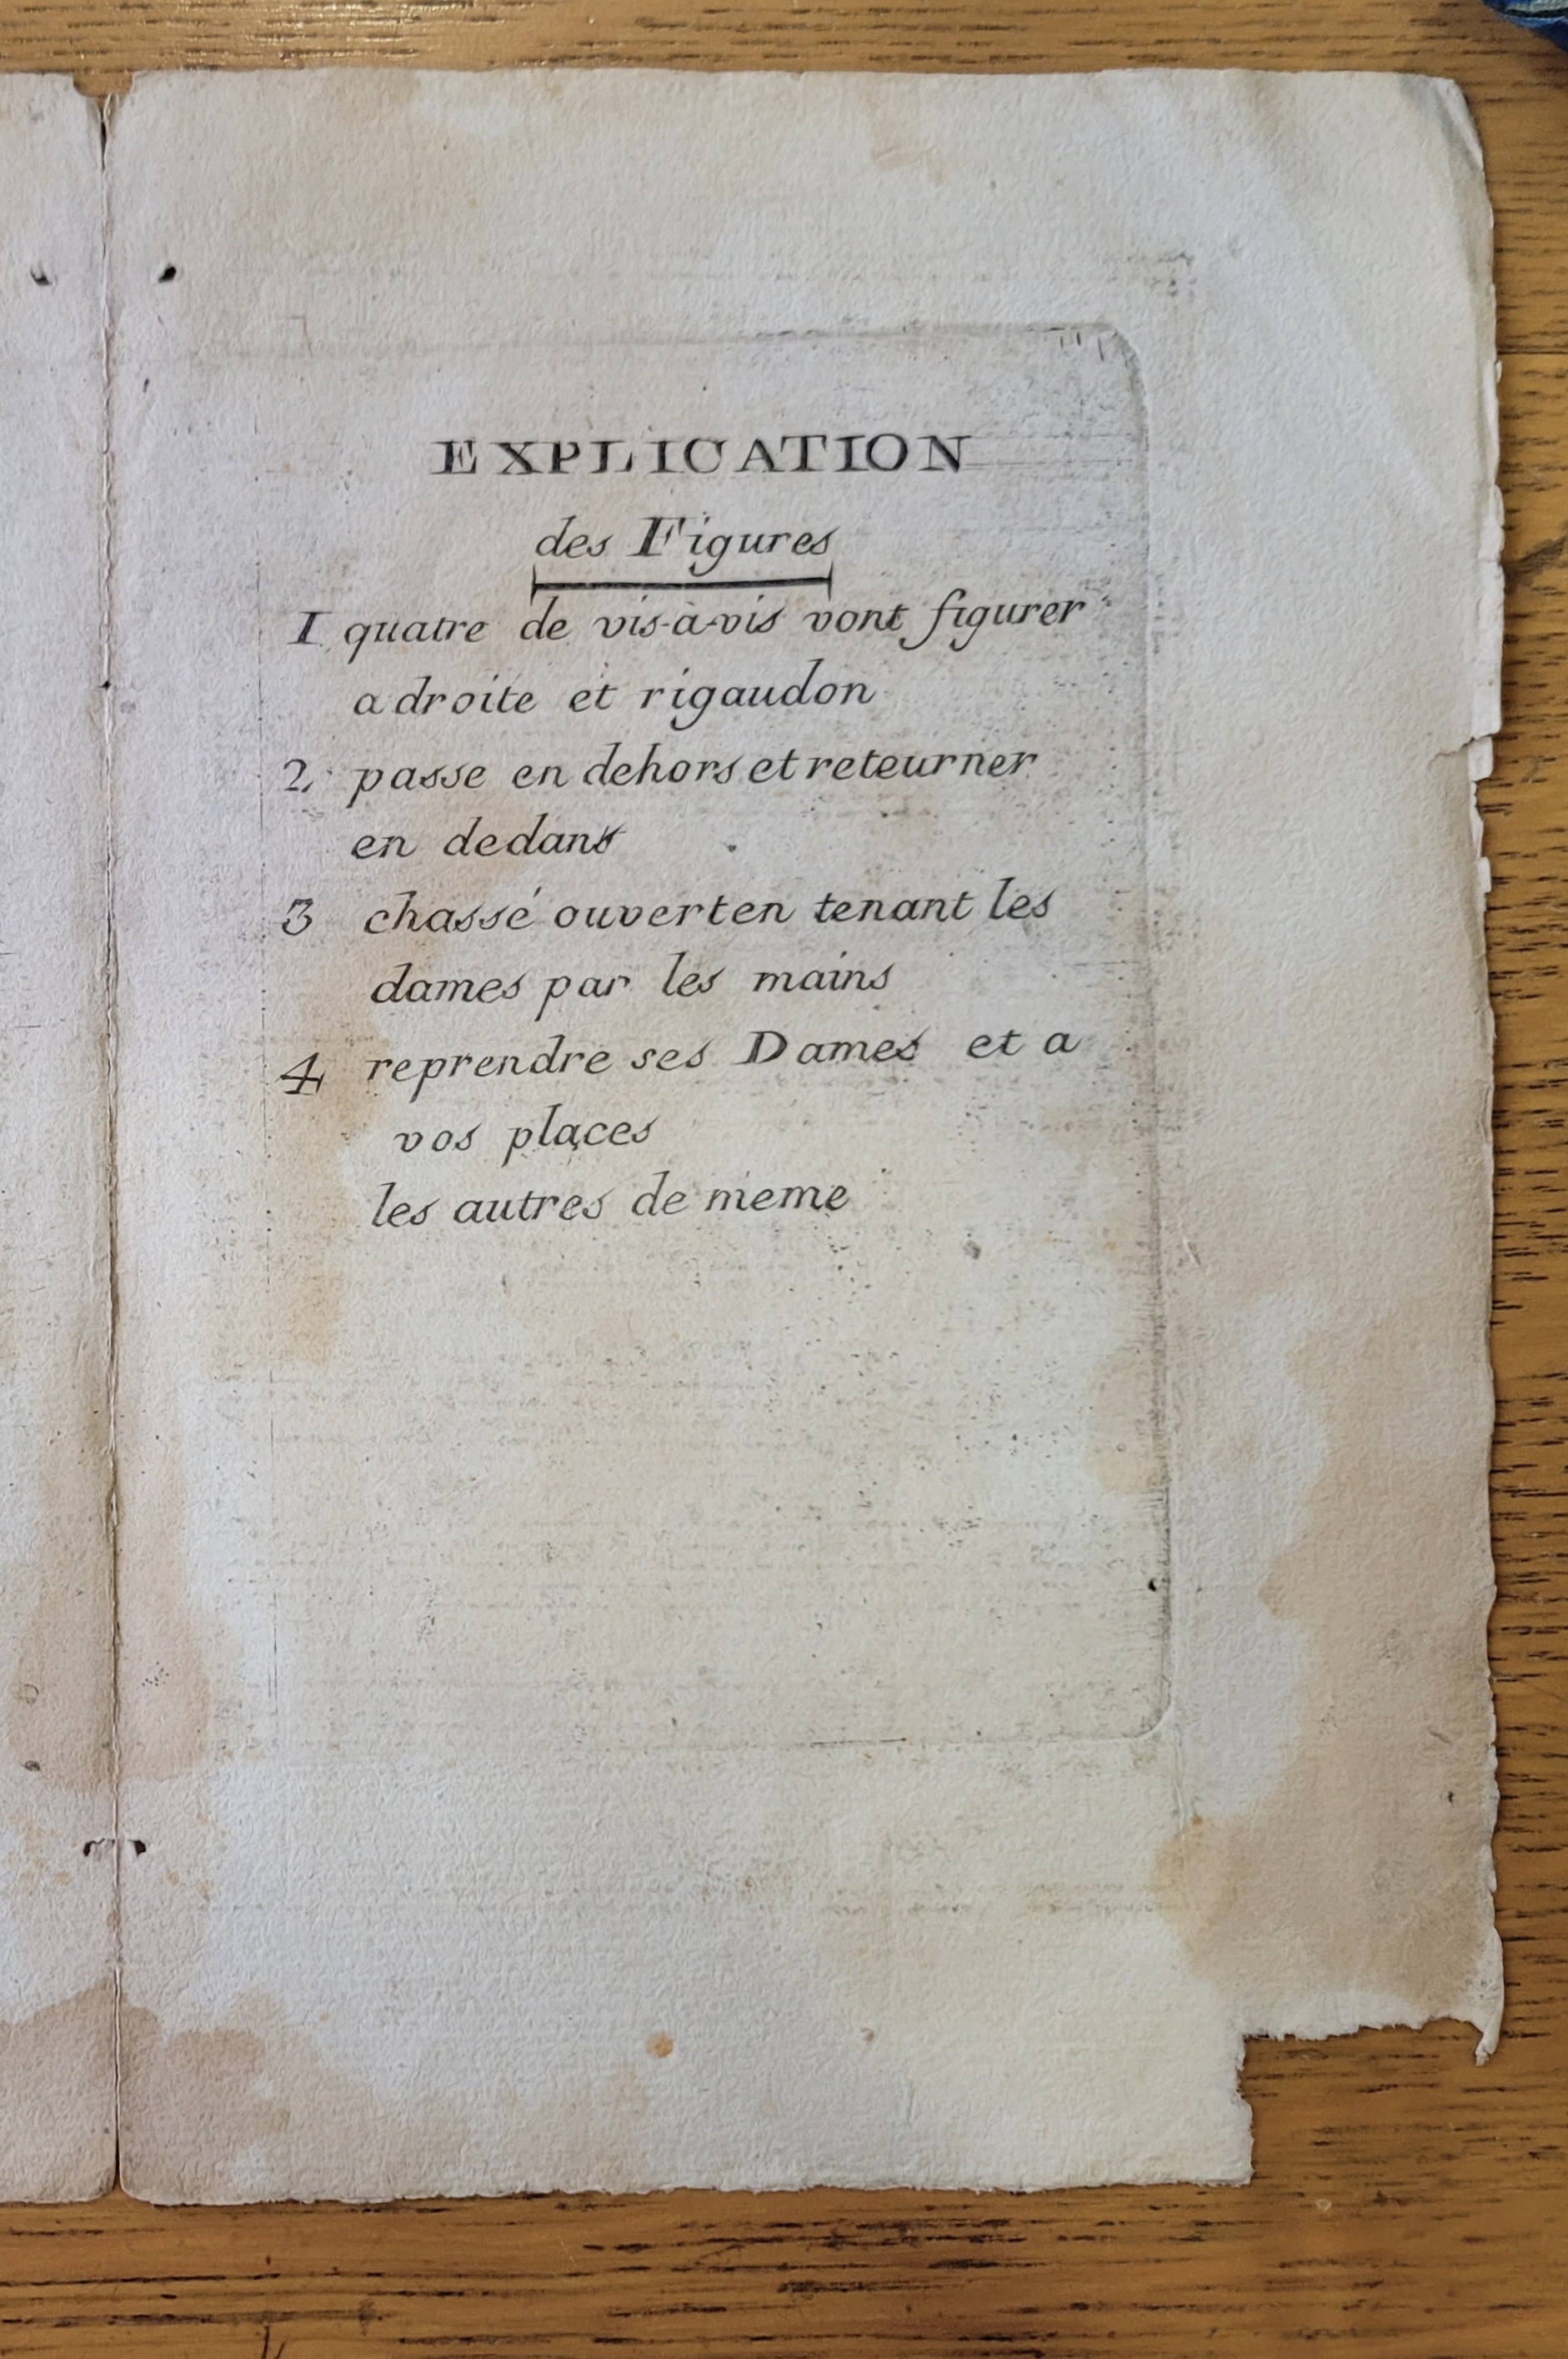 EXPLICATION
des Figures
1 quatre de vis-à-vis vont figurer
a droite et rigaudon
2 passe en dehors et reteurner
en dedans
3 chassé ouvert en tenant les
dames par les mains
4 reprendre ses Dames et a
vos places
les autres de meme